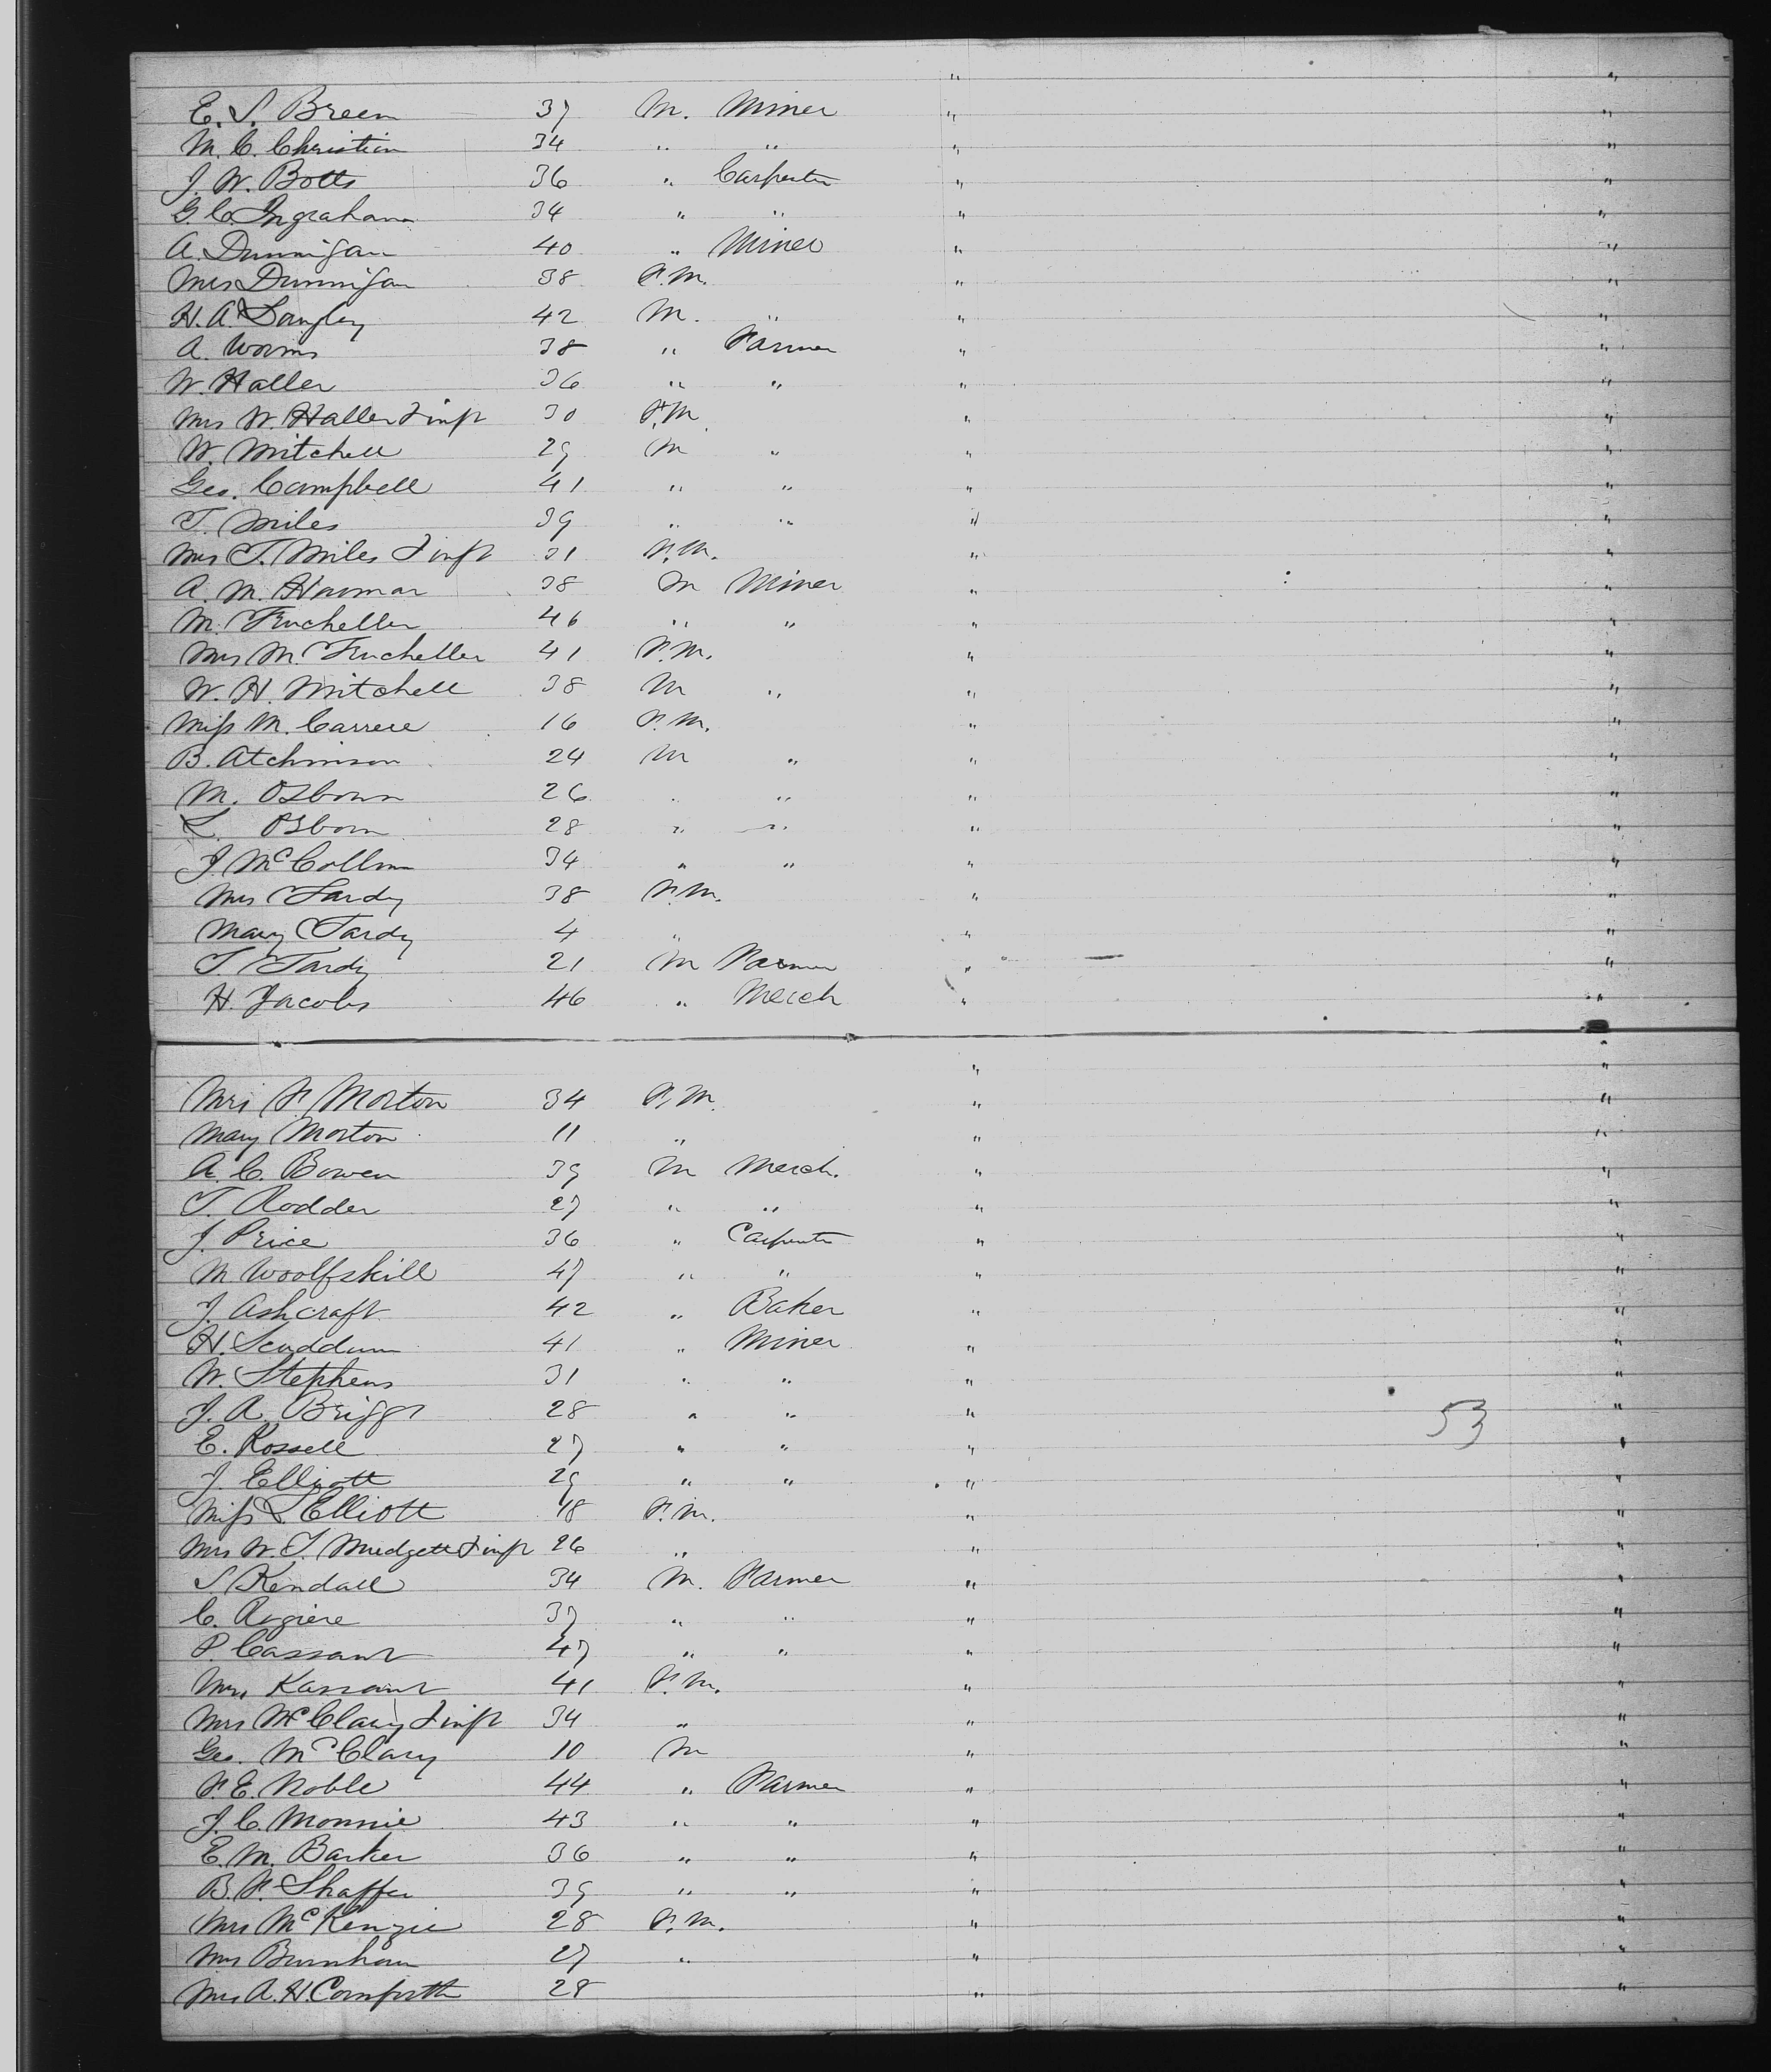 " "
E. S. Breen 37 M. Miner " "
M. C. Christian 34 " " " "
J. W. Botts 36 " Carpenter " "
G. C. Ingraham 34 " " " "
A. Dunnigan 40 " Miner " "
Mrs Dunnigan 38 F.M. " "
H. A. Langley 42 M. " " "
A. Worms 38 " Farmer " "
W. Haller 36 " " " "
Mrs W. Haller & inft 30 F.M " "
W. Mitchell 29 M " " "
Geo. Campbell 41 " " " "
T. Miles 39 " " " "
Mrs T. Miles & inft 31 F.M. " "
A. M. Harmar 38 M Miner " "
M. Frucheller 46 " " " "
Mrs M. Frucheller 41 F.M. " "
W. H. Mitchell 38 M " " "
Miss M. Carrere 16 F.M. " "
B. Atchinson 24 M " " "
M. Osborn 26 " " " "
L. Osborn 28 " " " "
J. McCollum 34 " " " "
Mrs Tardy 38 F.M. " "
Mary Tardy 4 " " "
T Tardy 21 M Farmer " "
H. Jacobs 46 " Merch " "
" "
Mrs F. Morton 34 F.M. " "
Mary Morton 11 " " "
A. C. Bowen 39 M Merch. " "
T. Rodder 27 " " " "
J. Price 36 " Carpenter " "
M Woolfskill 47 " " " "
J. Ashcraft 42 " Baker " "
H. Scuddum 41 " Miner " "
W. Stephens 31 " " " "
J. A. Briggs 28 " " " "
53
E. Rossell 27 " " " "
J. Elliott 29 " " " "
Miss L. Elliott 18 F.M. " "
Mrs W. T. Mudgett & inft 26 " " "
S. Kendall 34 M. Farmer " "
C. Rogiere 37 " " " "
P. Cassant 47 " " " "
Mrs Kassant 41 F.M. " "
Mrs McClary & inft 34 " " "
Geo. McClary 10 M " "
F. E. Noble 44 " Farmer " "
J. C. Monnie 43 " " " "
E. M. Barker 36 " " " "
B. F. Shaffer 39 " " " "
Mrs McKenzie 28 F.M. " "
Mrs Burnham 27 " " "
Mrs A. H. Cornforth 28 " "